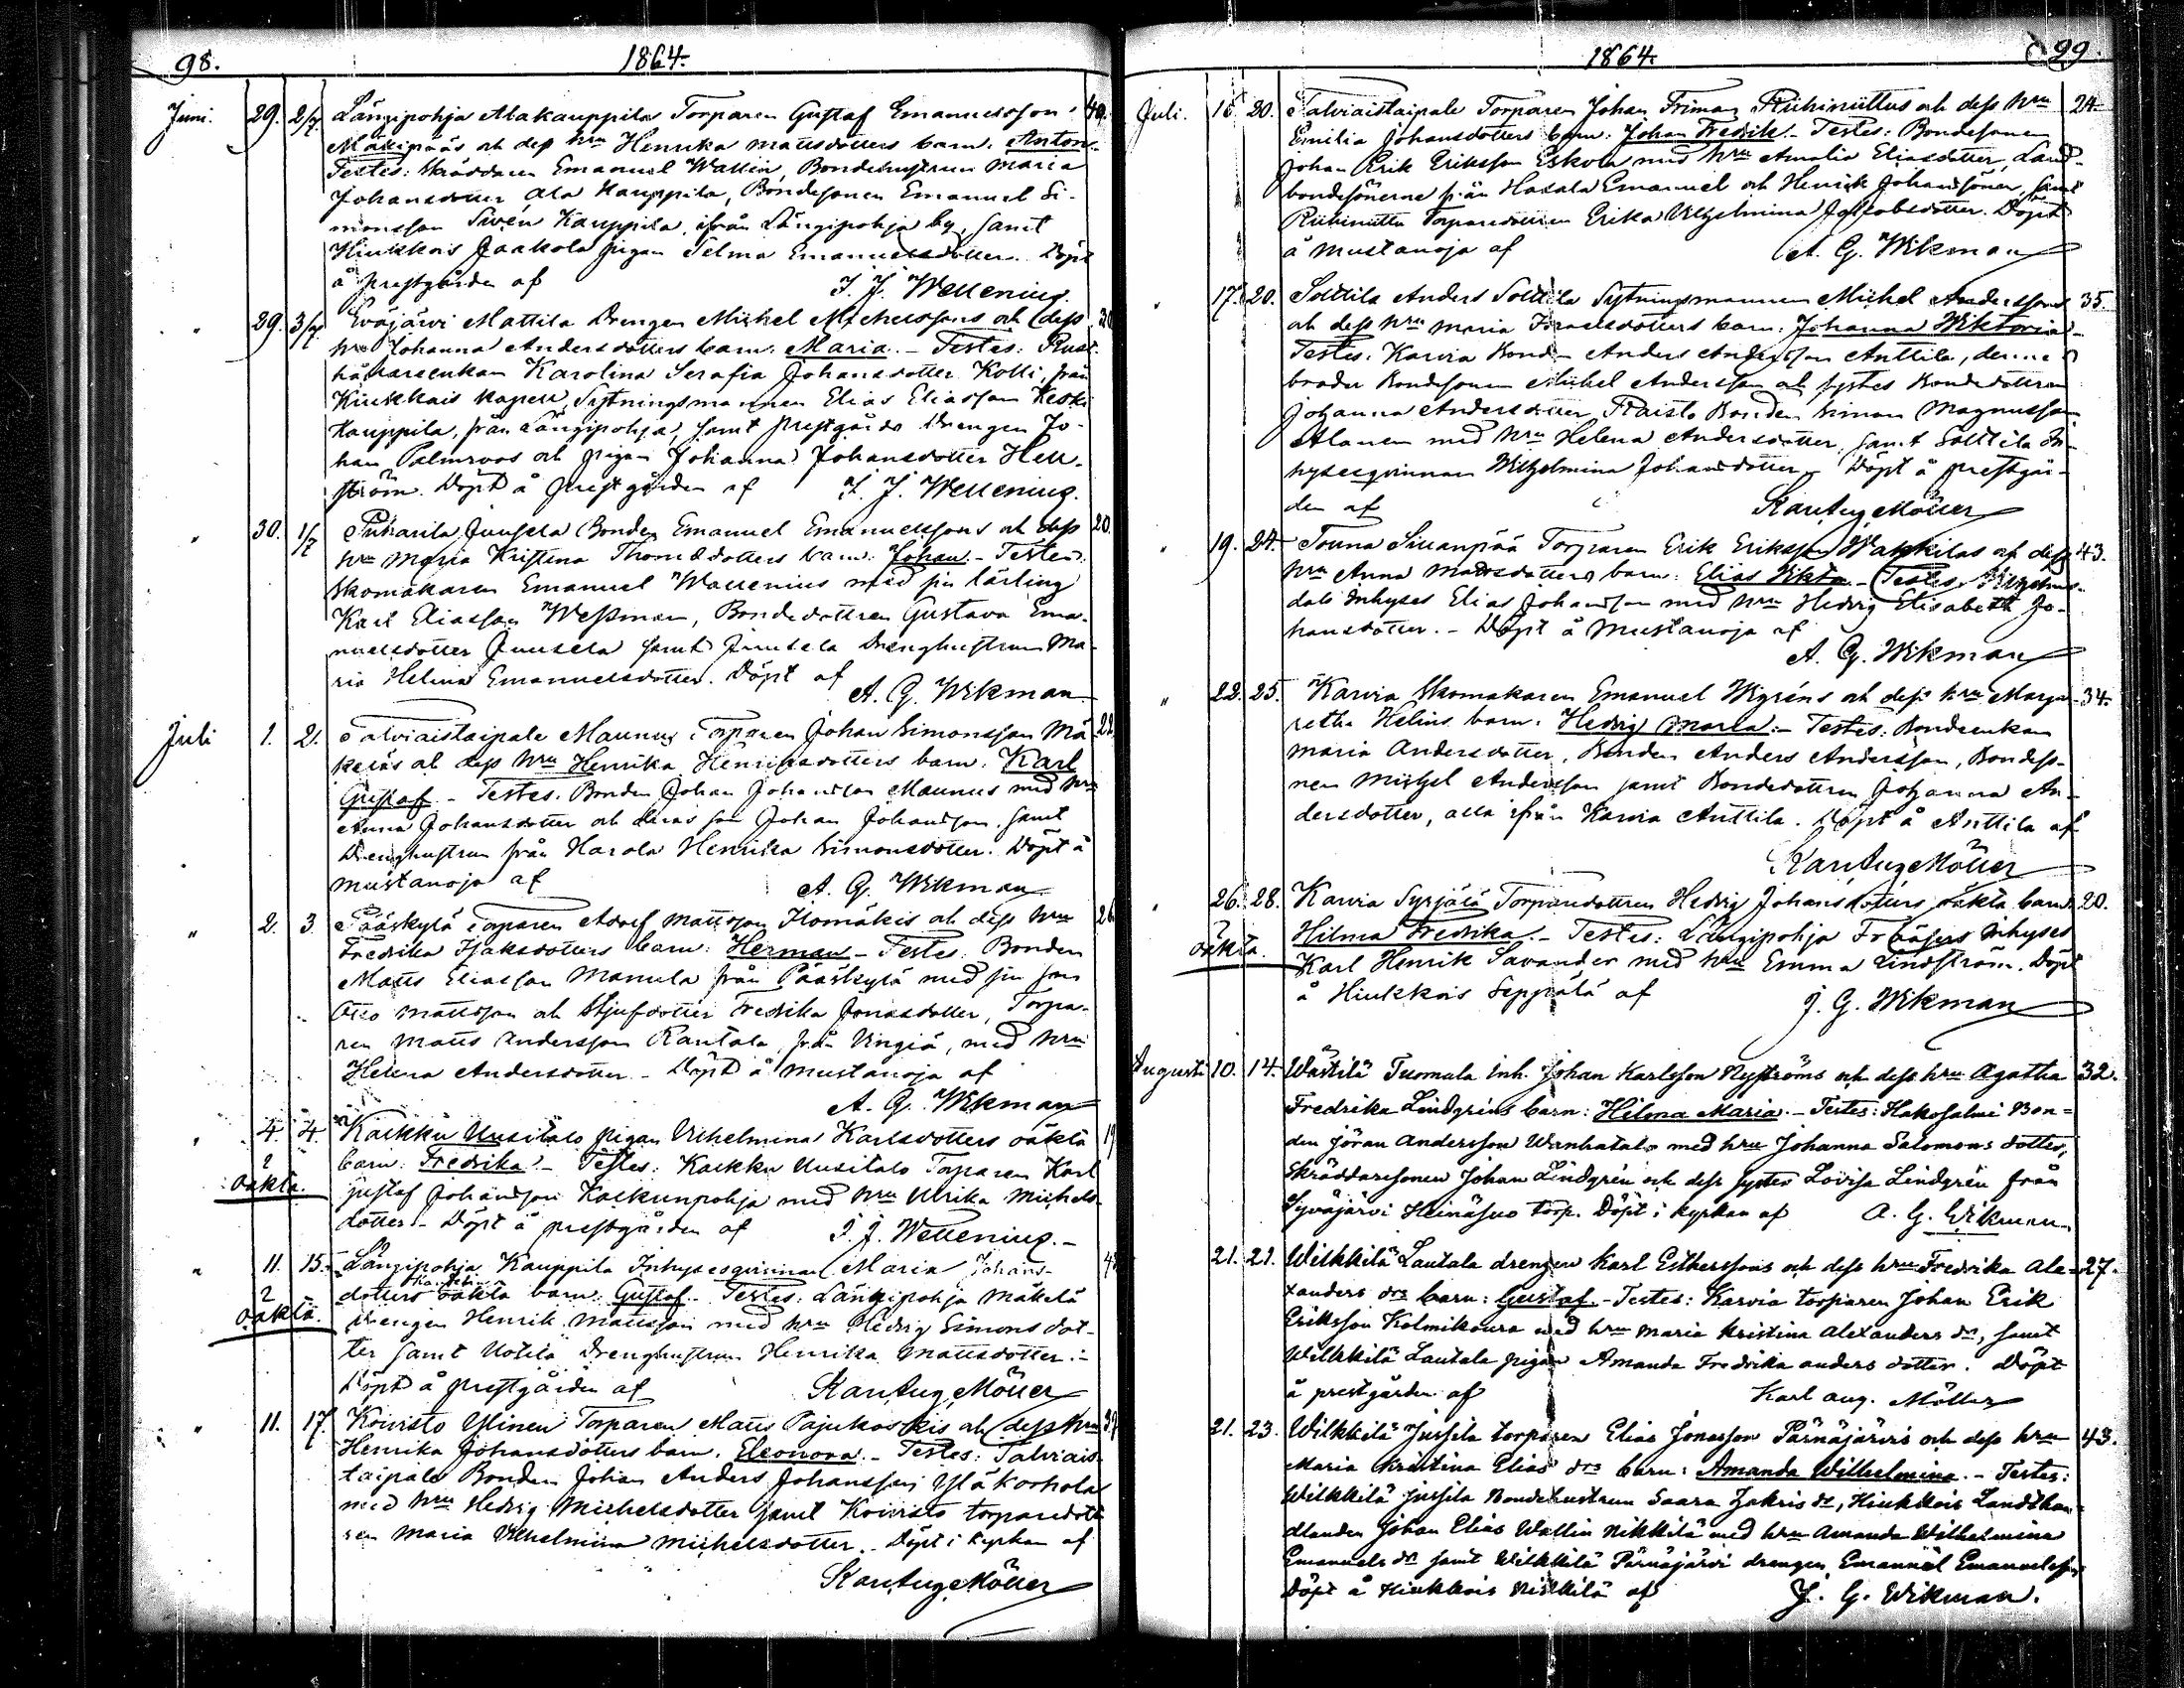 98.
1864.
Juni. 29. 2/7. Långipohja Alakauppilas Torparen Gustaf Emanuelsson 40.
Mäkipääs och dess hru Henrika Mattsdotters barn. Anton.
Testes: Skräddaren Emanuel Wallin, Bondehustrun Maria
Johansdotter Ala Kauppila, Bondesonen Emanuel Si-
monsson Sivén Kauppila, ifrån Långipohja by, samt
Hiukkois Jaakola pigan Selma Emanuelsdotter. Döpt
å prestgården af J. J. Wellenius.
" 29. 3/7. Eväjärvi Mattila Drengen Mickel Michelssons och dess 30
hru Johanna Andersdotters barn: Maria. - Testes: Rust-
hållareenkan Karolina Serafia Johansdotter Kolli, från
Kiukkais kapell, Sytningsmannen Elias Eliasson Keski
Kauppila, från Långipohja, samt prestgårds Drengen Jo-
han Palmroos och pigan Johanna Johansdotter Hell-
ström. Döpt å prestgården af J. J. Wellenius.
" 30. 1/7 Juusela Bonden Emanuel Emanuelssons och dess 20.
hru Maria Kristina Thomædotters barn: Johan. - Testes:
Skomakaren Emanuel Wallenius med sin lärling
Karl Eliasson Wessman, Bondedottren Gustava Ema-
nuelsdotter Juusela samt Juusela Drenghustrun Ma-
ria Helina Emanuelsdotter. Döpt af
A. G. Wikman
Juli 1. 2. Talviaistaipale Maunus Torparen Johan Simonsson Mä- 22
keläs och dess hru Henrika Henriksdotters barn: Karl
Gustaf. - Testes: Bonden Johan Johansson Maunus med hru
Anna Johansdotter och deras son Johan Johansson, samt
Drenghustrun från Harala Henrika Simonsdotter. Döpt å
Mustanoja af A. G. Wikman
" 2. 3. Pääskylä Torparen Adolf Mattsson Ilomäkis och dess hru 26
Fredrika Isaksdotters barn: Herman - Testes: Bonden
Matts Eliasson Mannila från Pääskylä med sin son
Otto Mattsson och Stjufdotter Fredrika Jonasdotter, Torpa-
ren Matts Andersson Rantala, från Vingiä, med hru
Helena Andersdotter - Döpt å Mustanoja af
A. G. Wikman
" 4. 4. Karkku Uusitalo pigan Vilhelmina Karlsdotters oäkta 19
barn: Fredrika - Testes: Karkku Uusitalo Torparen Karl
oäkta.
Gustaf Johansson Kaskunpohja med hru Ulrika Michels-
dotter. - Döpt å prestgården af J. J. Wellenius. -
" 11. 15. Långipohja Kauppila Inhysesqvinnan Maria Johans-
dotters oäkta barn Gustaf. - Testes: Långipohja Mäkelä
oäkta.
Drengen Henrik Mattsson med hru Hedvig Simonsdot-
ter samt Uotila Drenghustrun Henrika Mattsdotter. -
Döpt å prestgården af Karl Aug Möller
" 11. 17. Koivisto Ylinen Torparen Matts Pajukoskis och dess hru 37
Henrika Johansdotters barn. Eleonora. - Testes: Talviais-
taipale Bonden Johan Anders Johansson Yläkorhola
med hru Hedvig Michelsdotter samt Koivisto torparedott-
ren Maria Vilhelmina Michelsdotter. - Döpt i kyrkan af
Karl Aug Möller
1864.
99.
Juli. 15. 20. Talviaistaipale Torparen Johan Friman Riihiniittus och dess hru 24.
Emilia Johansdotters barn: Johan Fredrik. - Testes: Bondesonen
Johan Erik Eriksson Eskola med hru Amalia Eliasdotter, Land-
bondesönerna från Hasala Emanuel och Henrik Johanssöner, samt
Riihiniittu Torparedottren Erika Vilhelmina Jakobsdotter. Döpt
å Mustanoja af A. G. Wikman
" 17. 20. Solttila Anders Solttila Sytningsmannen Mickel Anderssons 35.
och dess hru Maria Israelsdotters barn: Johanna Wiktoria -
Testes: Karvia Bond. Anders Andersson Anttila, dennes
broder Bondesonen Mickel Andersson och systes Bondedottren
Johanna Andersdotter, Raisto Bonden Simon Magnusson
Alanen med hru Helena Andersdotter, samt Solttila In-
hysesqvinnan Wilhelmina Johansdotter. - Döpt å prestgår-
den af Karl Aug Möller
" 19. 24. Touna Sillanpää Torparen Erik Eriksson Wahkilas och dess 43.
hru Anna Mattsdotters barn: Elias Vikto. - Testes: Wilhelms-
dals Inhyses Elias Johansson med hru Hedvig Elisabeth Jo-
hansdotter. - Döpt å Mustanoja af
A. G. Wikman
" 22. 25. Karvia Skomakaren Emanuel Wigréns och dess hru Marga- 34.
retha Helins barn: Hedvig Maria: - Testes: Bondeenkan
Maria Andersdotter, Bonden Anders Andersson, Bondeso-
nen Mickel Andersson samt Bondedottren Johanna An-
dersdotter, alla ifrån Karvia Anttila. Döpt å Anttila af
Karl Aug Möller
" 26. 28. Karvia Syrjälä Torparedottren Hedvig Johansdotters oäkta barn. 20.
oäkta.
Hilma Fredrika. - Testes: Långipohja Inhyses
Karl Henrik Savander med hru Emma Lindström. Döpt
å Hiukkois Seppälä af J. G. Wikman
Augusti 10. 14. Västilä Tuomala Inh. Johan Karlsson Nyströms och dess hru Agatha 32.
Fredrika Lindgrens barn: Hilma Maria. - Testes: Hakosalmi Bon=
den Jöran Andersson Wanhatalo med hru Johanna Salomons dotter,
Skräddaresonen Johan Lindgrén och dess syster Lovisa Lindgrén från
Syväjärvi Heinäsuo torp. Döpt i kyrkan af A. G. Wikman.
21. 21. Wilkkilä Lautala drengen Karl Estherssons och dess hru Fredrika Ale- 27.
xanders drs barn: Gustaf. - Testes: Karvia torparen Johan Erik
Eriksson Kolmikoura med hru Maria Kristina Alexanders dr, samt
Wilkkilä Lautala pigan Amanda Fredrika Anders dotter. Döpt
å prestgården af Karl Aug. Möller
21. 23. Wilkkilä Jussila torparen Elias Jonasson Pärnäjärvis och dess hru 43.
Maria Kristina Elias drs barn: Amanda Wilhelmina. - Testes:
Wilkkilä Jussila Bondehustrun Saara Zakris dr, Hiukkois Landthan=
dlanden Johan Elias Wallin Nikkilä med hru Amanda Wilhelmina
Emanuels dr samt Wilkkilä Pärnäjärvi drengen Emanuel Emanuelsson
Döpt å Hiukkois Nikkilä af J. G. Wikman.